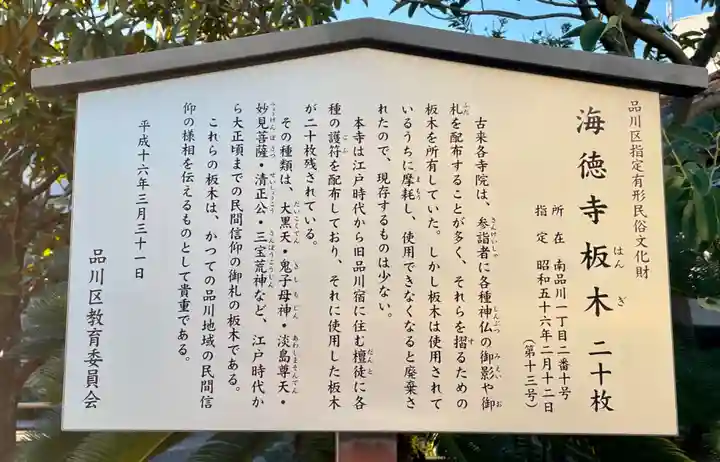 品川区指定有形民俗文化財
海徳寺板木 二十枚
はん ぎ
所在 南品川一丁目二番十号
指定 昭和五十六年二月十二日
(第十三号)
古来各寺院は、参詣者に各種神仏の御影や御
さんけいしゃ しんぶつ みえい お
札を配布することが多く、それらを摺るための
ふだ す
板木を所有していた。しかし板木は使用されて
いるうちに摩耗し、使用できなくなると廃棄さ
まもう
れたので、現存するものは少ない。
本寺は江戸時代から旧品川宿に住む檀徒に各
だんと
種の護符を配布しており、それに使用した板木
ごふ
が二十枚残されている。
その種類は、大黒天・鬼子母神・淡島尊天・
だいこくてん きしもじん あわしまそんてん
妙見菩薩・清正公・三宝荒神など、江戸時代か
みょうけんぼさつ せいしょうこう さんぽうこうじん
ら大正頃までの民間信仰の御札の板木である。
これらの板木は、かつての品川地域の民間信
仰の様相を伝えるものとして貴重である。
平成十六年三月三十一日
品川区教育委員会